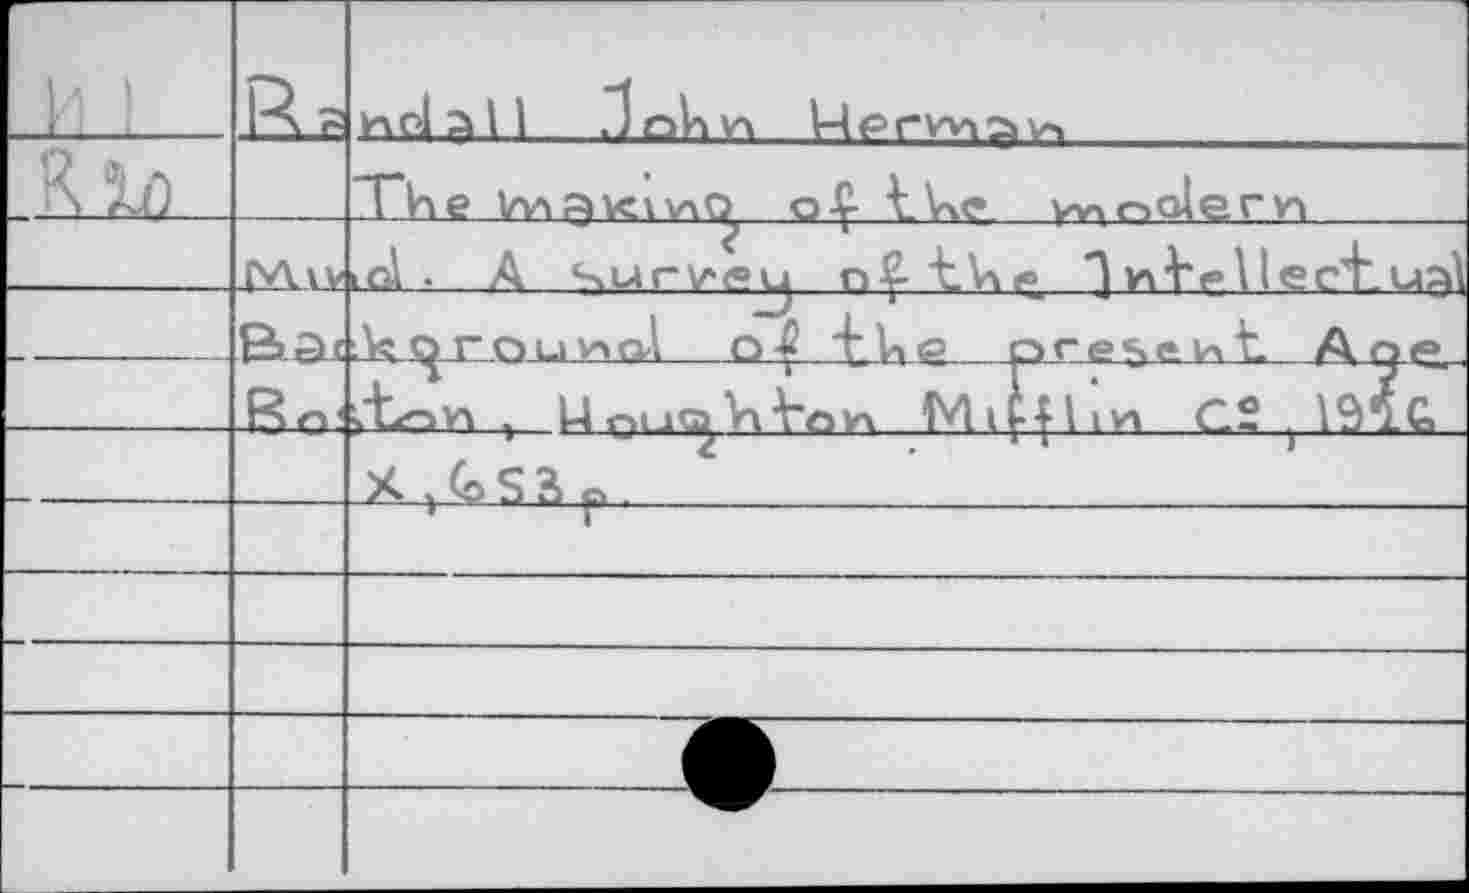 И 1 Randall John Herman
R 20 The making of the modern
Mind. A Survey of the Intellectual
Background of the present Age.
Boston, Houghton Mifflin Cº, 1926
X, 653 p.